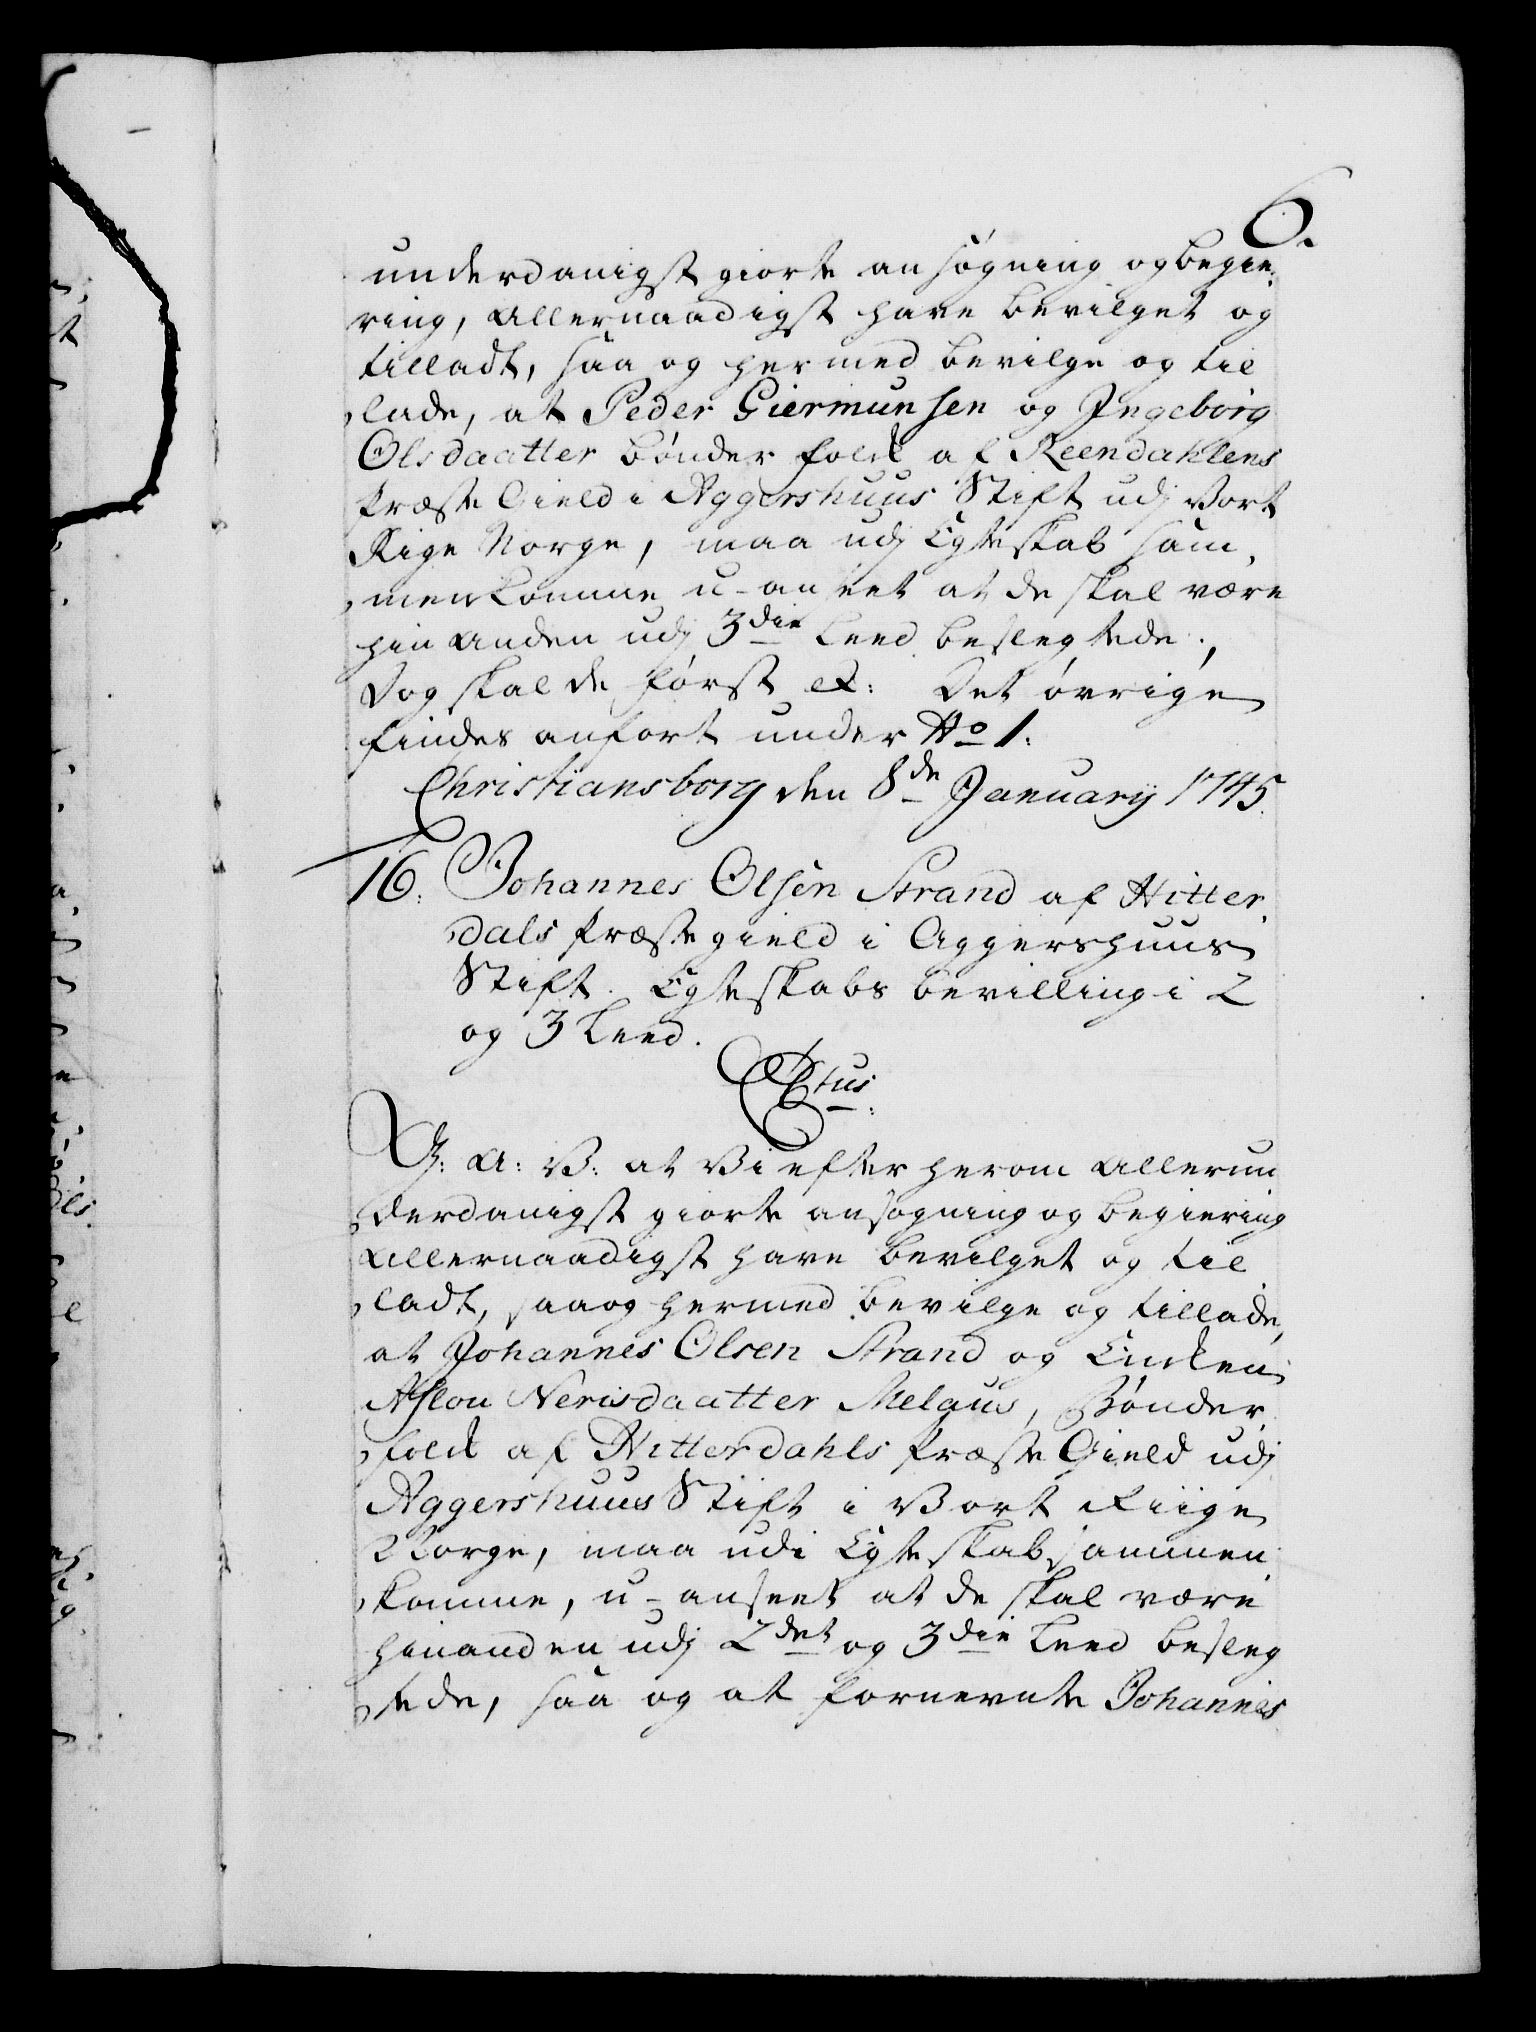 6.
underdanigst giorte ansøgning og begie,
ring, Allernaadigst have bevilget og
tilladt, saa og hermed bevilge og til
lade, at Peder Giermunsen og Ingeborg
Olsdaatter bønder folck af Reendahlens
Præste Gield i Aggershuus Stift udj Vort
Rige Norge, maa udj Egteskab sam,
menkomme u-anseet at de skal være
hin Anden udj 3die Leed beslegtede.,
Dog skal de først et: Det øvrige
findes anført under No 1.
Christiansborg den 8de Januarij 1745.
16. Johannes Olsen Strand af Hitter,
dals Præstegield i Aggershuus
Stift. Egteskabs bevilling i 2
og 3 Leed.
C 6tus
G: A: V: at Vi efter herom Allerun
derdanigst giorte ansøgning og begiering
Allernaadigst have bevilget og til
ladt, saa og hermed bevilge og tillade,
at Johannes Olsen Strand og Encken
Aslou Nerisdaatter Melaus, Bønder,
folck af Hitterdahls Præste Gield udj
Aggershuus Stift i Vort Riige
Norge, maa udi Egteskab sammen
komme, u-anseet at de skal være
hinanden udj 2det og 3die Leed besleg
tede, saa og at fornevnte Johannes